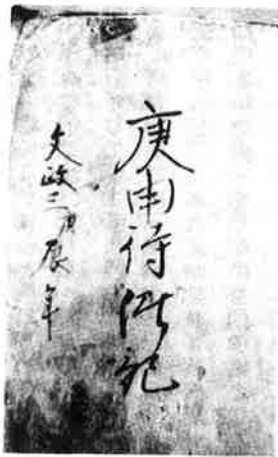 庚申待供記
文政三庚辰年